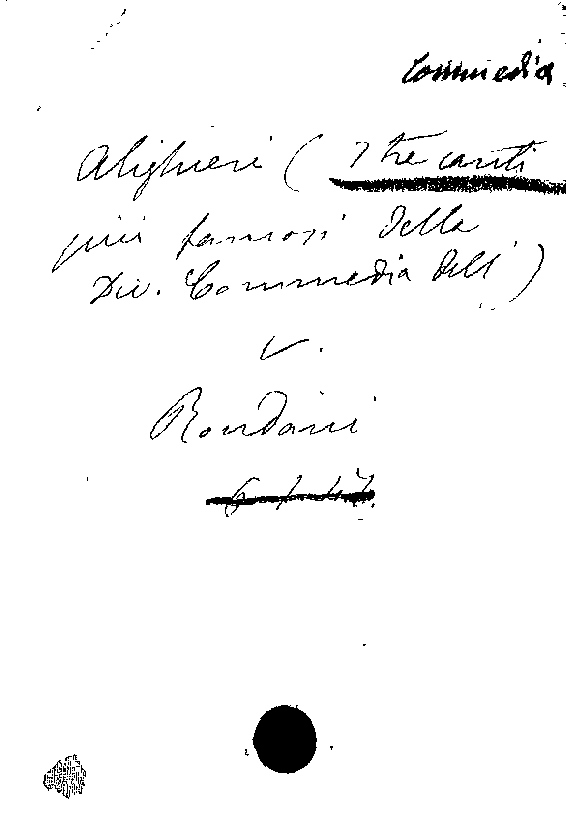 Commedia
Alighieri ( I tre canti
più famosi della
Div. Commedia dell' )
v.
Rondani